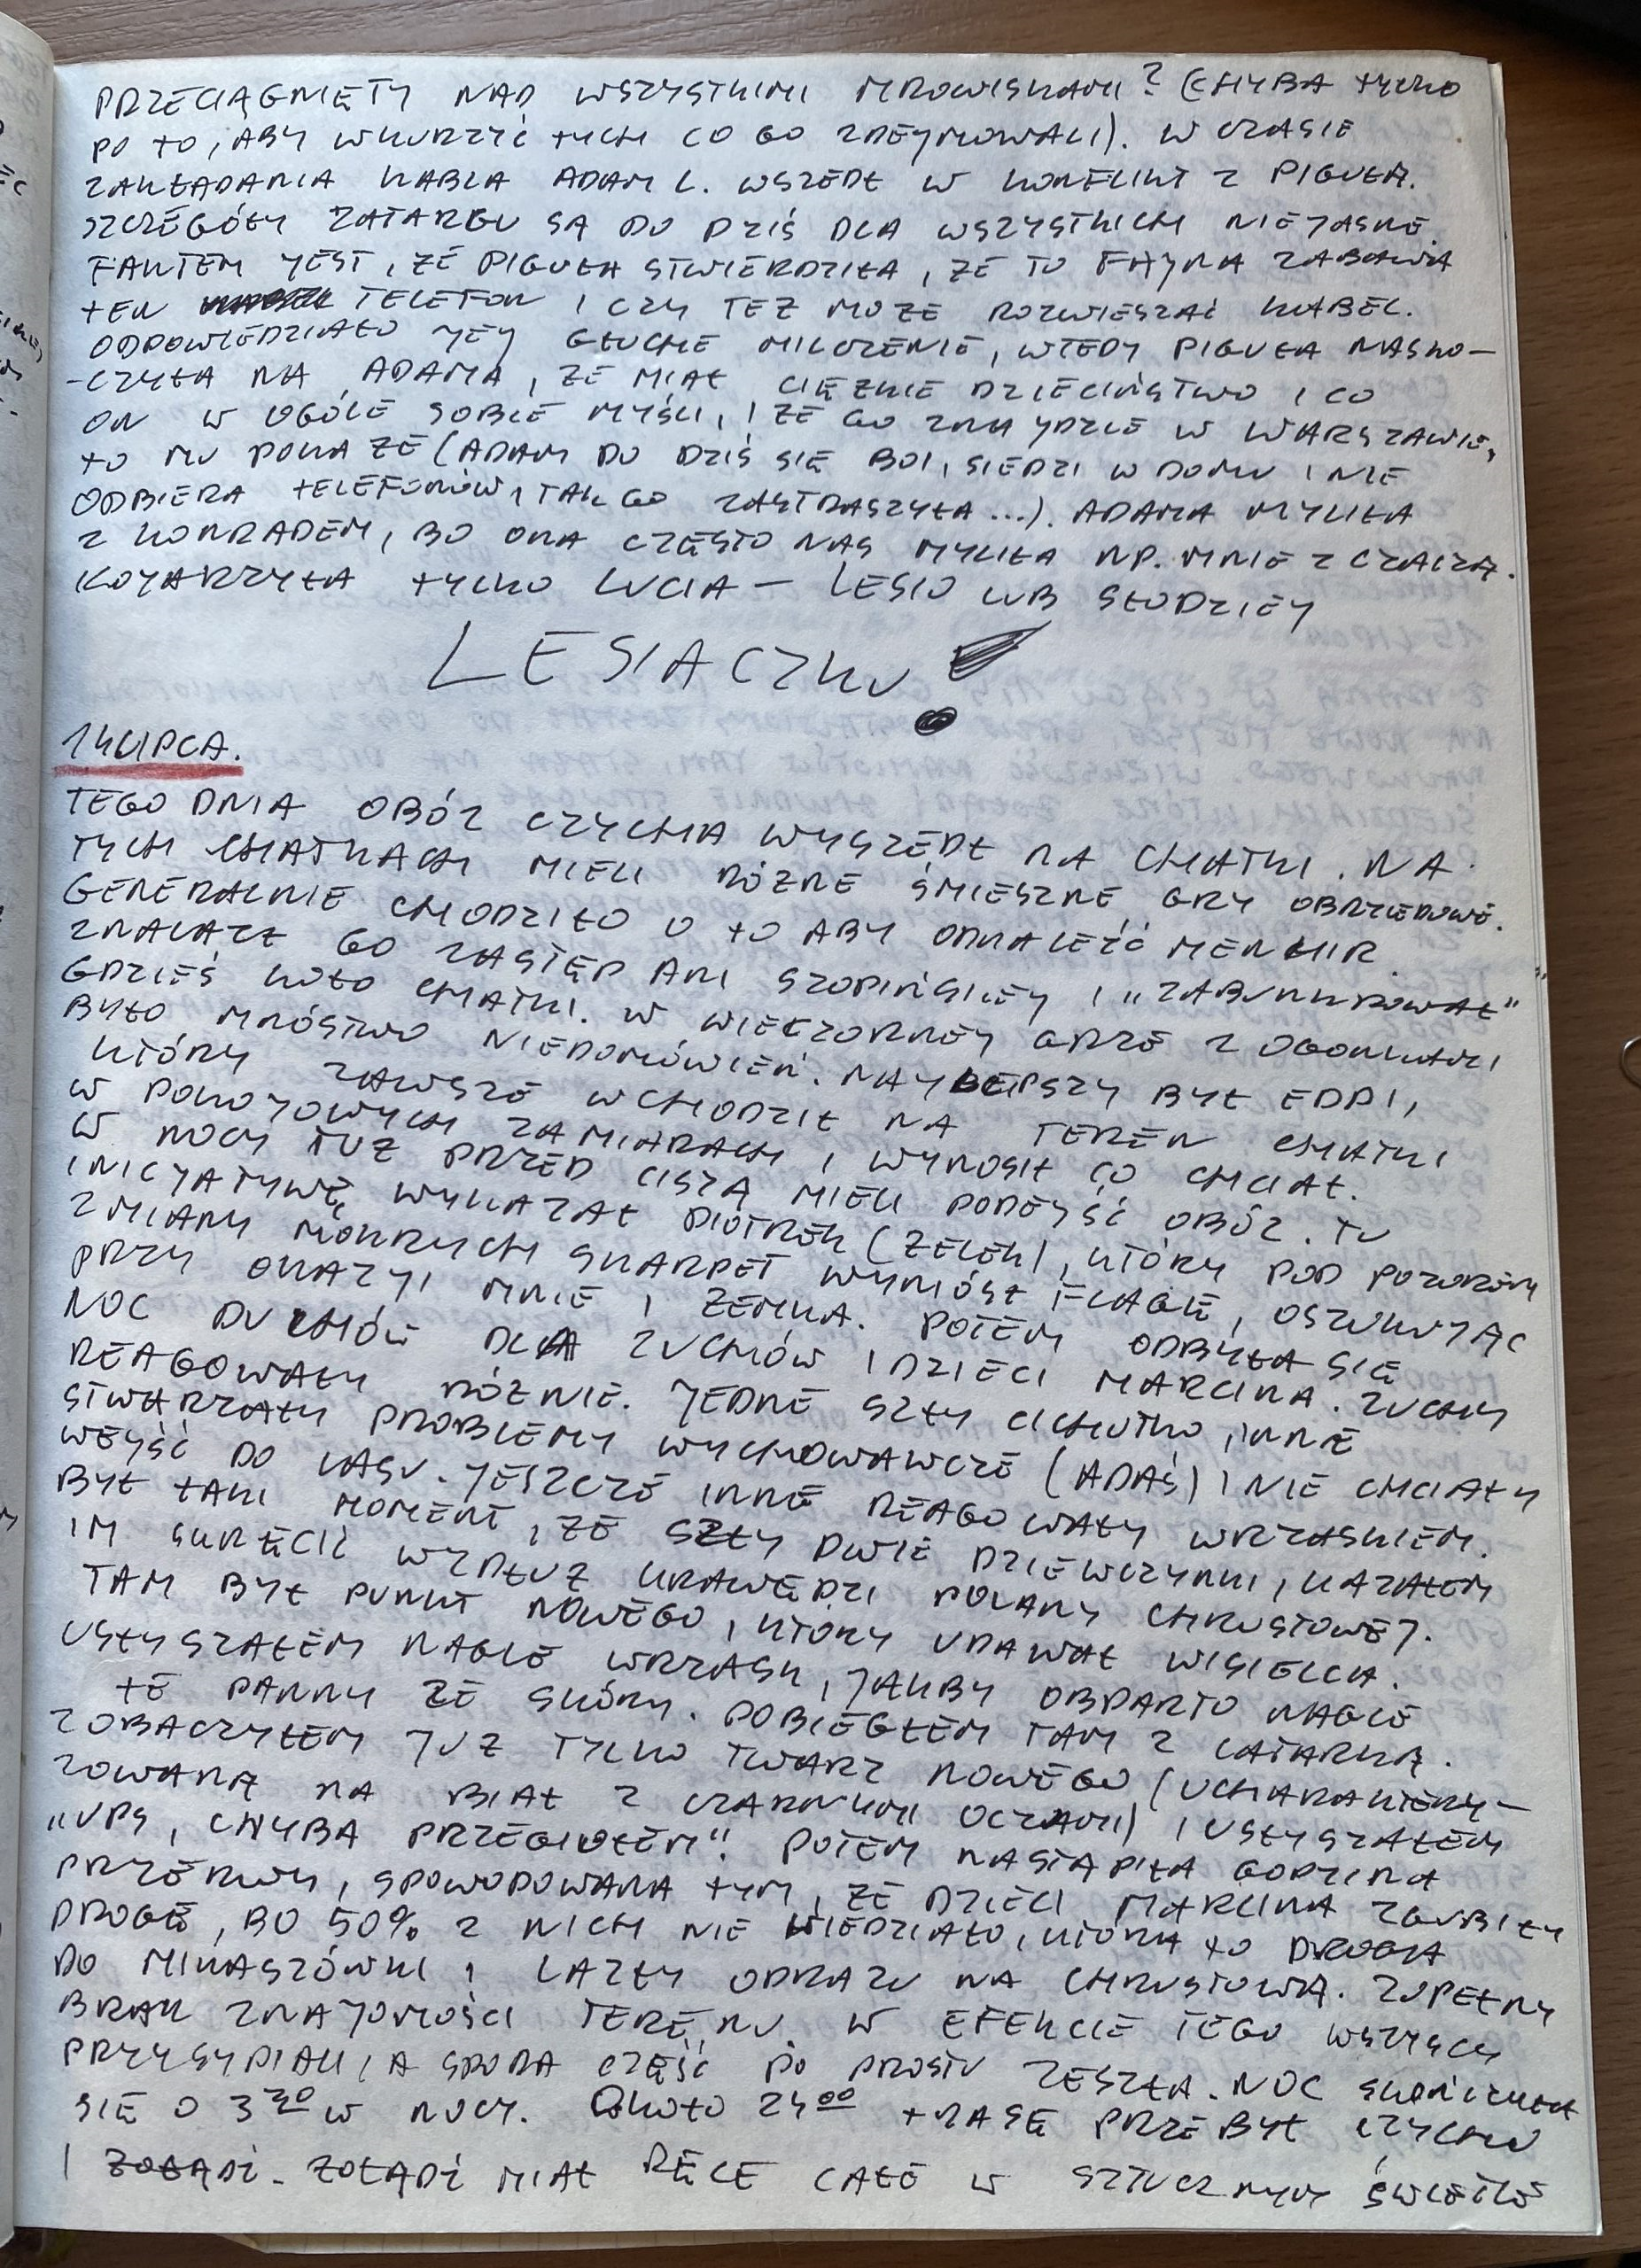 PRZECIĄGNIĘTY NAD WSZYSTKIMI MROWISKAMI? (CHYBA TYLKO
PO TO, ABY WKURZYĆ TYCH CO GO ZDEJMOWALI). W CZASIE
ZAKŁADANIA KABLA ADAM L. WSZEDŁ W KONFLIKT Z PIGUŁĄ.
SZCZEGÓŁY ZATARGU SĄ DO DZIŚ DLA WSZYSTKICH NIEJASNE.
FAKTEM JEST, ŻE PIGUŁA STWIERDZIŁA, ŻE TO FAJNA ZABAWA
TEN TELEFON I CZY TEŻ MOŻE ROZWIESZAĆ KABEL.
ODPOWIEDZIAŁO JEJ GŁUCHE MILCZENIE, WTEDY PIGUŁA NASKO-
-CZYŁA NA ADAMA, ŻE MIAŁ CIĘŻKIE DZIECIŃSTWO I CO
ON W OGÓLE SOBIE MYŚLI, I ŻE GO ZNAJDZIE W WARSZAWIE,
TO MU POKAŻE (ADAM DO DZIŚ SIĘ BOI, SIEDZI W DOMU I NIE
ODBIERA TELEFONÓW, TAK GO ZASTRASZYŁA...). ADAMA MYLIŁA
Z KONRADEM, BO ONA CZĘSTO NAS MYLIŁA NP. MNIE Z CZACZĄ.
KOJARZYŁA TYLKO LUCIA - LESIO LUB SŁODZIEJ
LESIACZKU!
14 LIPCA.
TEGO DNIA OBÓZ CZYCHA WYSZEDŁ NA CHATKI. NA
TYCH CHATKACH MIELI RÓŻNE ŚMIESZNE GRY OBRZĘDOWE.
GENERALNIE CHODZIŁO O TO ABY ODNALEŹĆ MENHIR.
ZNALAZŁ GO ZASTĘP ANI SZOPIŃSKIEJ I „ZABUNKROWAŁ"
GDZIEŚ KOŁO CHATKI. W WIECZORNEJ GRZE Z OGONKAMI
BYŁO MNÓSTWO NIEDOMÓWIEŃ. NAJLEPSZY BYŁ EDDI,
KTÓRY ZAWSZE WCHODZIŁ NA TEREN CHATKI
W POKOJOWYCH ZAMIARACH I WYNOSIŁ CO CHCIAŁ.
W NOCY TUŻ PRZED CISZĄ MIELI PODEJŚĆ OBÓZ. TU
INICJATYWĘ WYKAZAŁ PIOTREK (ZELEK), KTÓRY POD POZOREM
ZMIANY MOKRYCH SKARPET WYNIÓSŁ FLAGĘ, OSZUKUJĄC
PRZY OKAZJI MNIE I ZEMKA. POTEM ODBYŁA SIĘ
NOC DUCHÓW DLA ZUCHÓW I DZIECI MARCINA. ZUCHY
REAGOWAŁY RÓŻNIE. JEDNE SZŁY CICHUTKO, INNE
STWARZAŁY PROBLEMY WYCHOWAWCZE (ADAŚ) I NIE CHCIAŁY
WEJŚĆ DO LASU. JESZCZE INNE REAGOWAŁY WRZASKIEM.
BYŁ TAKI MOMENT, ŻE SZŁY DWIE DZIEWCZYNKI, KAZAŁEM
IM SKRĘCIĆ WZDŁUŻ KRAWĘDZI POLANY CHRUSTOWEJ.
TAM BYŁ PUNKT NOWEGO, KTÓRY UDAWAŁ WISIELCA.
USŁYSZAŁEM NAGLE WRZASK, JAKBY OBDARTO NAGLE
TE PANNY ZE SKÓRY. POBIEGŁEM TAM Z LATARKĄ.
ZOBACZYŁEM JUŻ TYLKO TWARZ NOWEGO (UCHARAKTERY-
ZOWANĄ NA BIAŁ Z CZARNYMI OCZAMI) I USŁYSZAŁEM
„UPS, CHYBA PRZEGIOŁEM". POTEM NASTĄPIŁA GODZINA
PRZERWY, SPOWODOWANA TYM, ŻE DZIECI MARCINA ZGUBIŁY
DROGĘ, BO 50% Z NICH NIE WIEDZIAŁO, KTÓRA TO DROGA
DO MIKASZÓWKI I LAZŁY ODRAZU NA CHRUSTOWĄ. ZUPEŁNY
BRAK ZNAJOMOŚCI TERENU. W EFEKCIE TEGO WSZYSCY
PRZYSYPIALI, A SPORA CZĘŚĆ PO PROSTU ZESZŁA. NOC SKOŃCZYŁA
SIĘ O 3 30 W NOCY. OKOŁO 24 00 TRASĘ PRZEBYŁ CZYCHU
I ŻOŁĄDŹ. ŻOŁĄDŹ MIAŁ RĘCE CAŁE W SZTUCZNYM ŚWIETLE